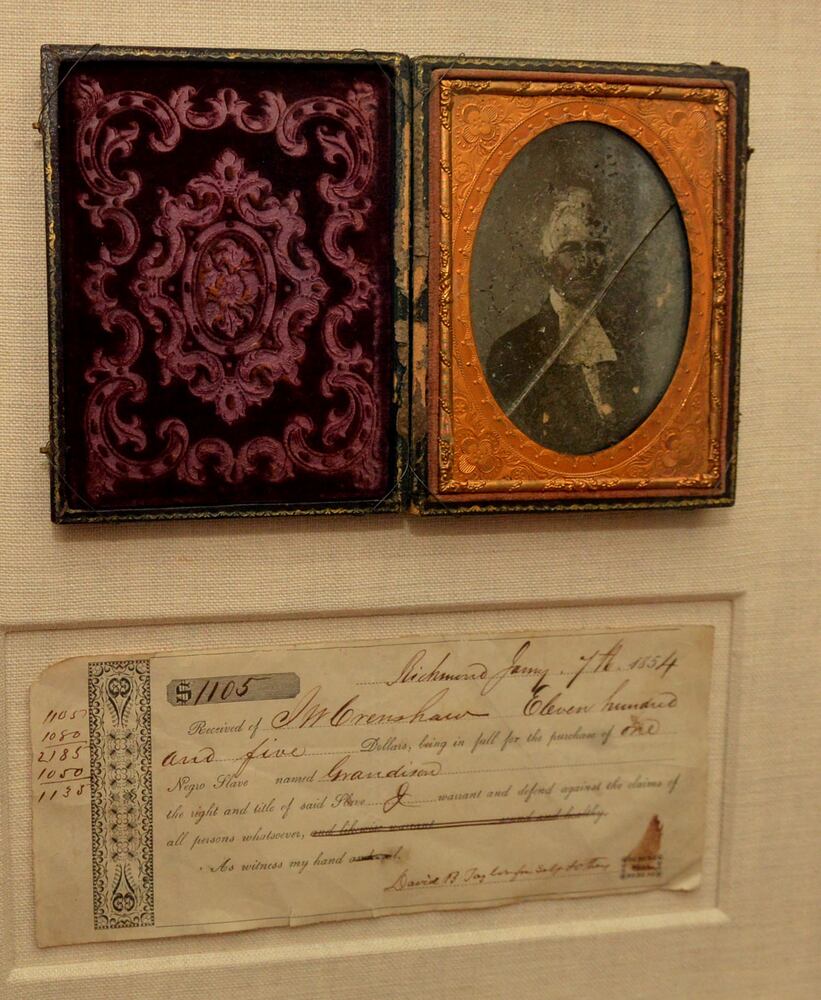 Richmond Jany. 7th. 1854
$1105
Received of JW Crenshaw Eleven hundred
and five Dollars, being in full for the purchase of one
Negro Slave named Grandison
the right and title of said Slave I warrant and defend against the claims of
all persons whatsoever, and likewise warrant sound and healthy.
As witness my hand
David B Taylor
1105
1080
2185
1050
1135